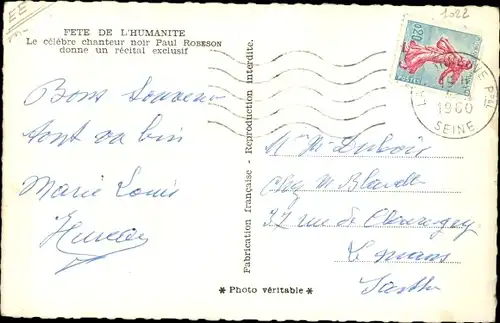 EE
1022
FETE DE L'HUMANITE
Le célèbre chanteur noir Paul ROBESON
donne un récital exclusif
0,20
1960
SEINE
Bons Souvenirs
tout va bien
Marie Louis
Fabrication française - Reproduction interdite.
Mme Dubois
Chez M
37 rue de
Le Mans
Sarthe
* Photo véritable *